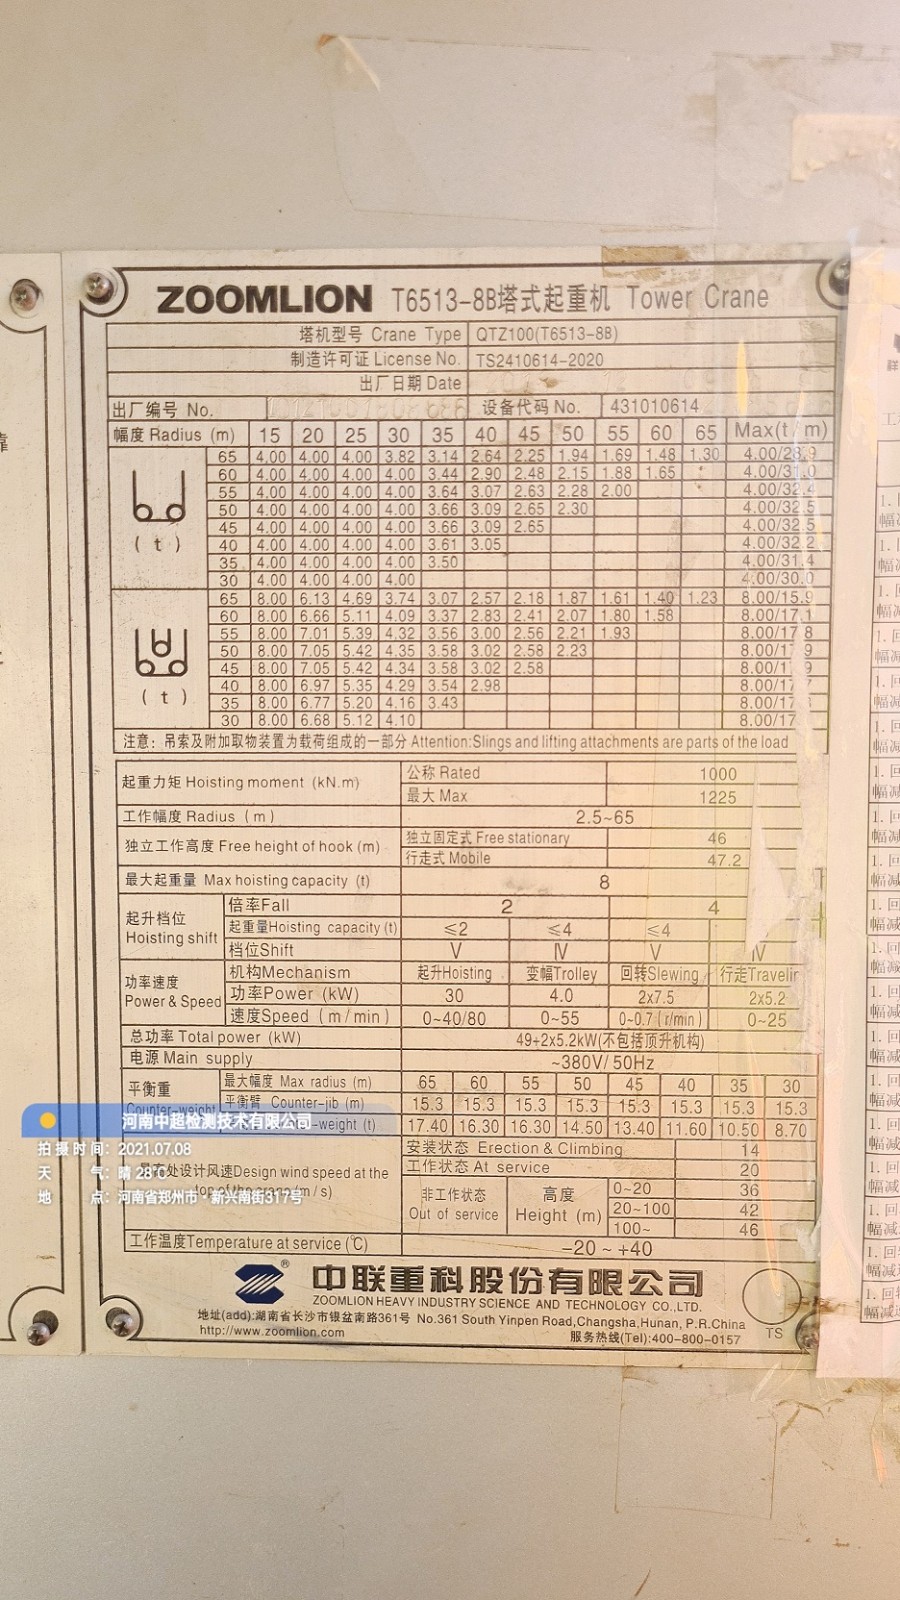 ZOOMLION T6513-8B塔式起重机 Tower Crane
塔机型号 Crane Type QTZ100(T6513-8B)
制造许可证 License No. TS2410614-2020
出厂日期 Date
出厂编号 No. 设备代码 No. 431010614
幅度 Radius (m) 15 20 25 30 35 40 45 50 55 60 65 Max(t/m)
65 4.00 4.00 4.00 3.82 3.14 2.64 2.25 1.94 1.69 1.48 1.30 4.00/28.9
60 4.00 4.00 4.00 4.00 3.44 2.90 2.48 2.15 1.88 1.65 4.00/31.0
55 4.00 4.00 4.00 4.00 3.64 3.07 2.63 2.28 2.00 4.00/32.4
50 4.00 4.00 4.00 4.00 3.66 3.09 2.65 2.30 4.00/32.5
45 4.00 4.00 4.00 4.00 3.66 3.09 2.65 4.00/32.5
(t) 40 4.00 4.00 4.00 4.00 3.61 3.05 4.00/32.2
35 4.00 4.00 4.00 4.00 3.50 4.00/31.4
30 4.00 4.00 4.00 4.00 4.00/30.0
65 8.00 6.13 4.69 3.74 3.07 2.57 2.18 1.87 1.61 1.40 1.23 8.00/15.9
60 8.00 6.66 5.11 4.09 3.37 2.83 2.41 2.07 1.80 1.58 8.00/17.1
55 8.00 7.01 5.39 4.32 3.56 3.00 2.56 2.21 1.93 8.00/17.8
50 8.00 7.05 5.42 4.35 3.58 3.02 2.58 2.23 8.00/17.9
45 8.00 7.05 5.42 4.34 3.58 3.02 2.58 8.00/17.9
(t) 40 8.00 6.97 5.35 4.29 3.54 2.98 8.00/17.7
35 8.00 6.77 5.20 4.16 3.43 8.00/17
30 8.00 6.68 5.12 4.10 8.00/17
注意: 吊索及附加取物装置为载荷组成的一部分 Attention:Slings and lifting attachments are parts of the load
起重力矩 Hoisting moment (kN.m) 公称 Rated 1000
最大 Max 1225
工作幅度 Radius (m) 2.5~65
独立工作高度 Free height of hook (m) 独立固定式 Free stationary 46
行走式 Mobile 47.2
最大起重量 Max hoisting capacity (t) 8
起升档位 Hoisting shift 倍率Fall 2 4
起重量Hoisting capacity (t) ≤2 ≤4 ≤4
档位Shift V IV V IV
功率速度 Power & Speed 机构Mechanism 起升Hoisting 变幅Trolley 回转Slewing 行走Travelin
功率Power (kW) 30 4.0 2x7.5 2x5.2
速度Speed (m/min) 0~40/80 0~55 0~0.7(r/min) 0~25
总功率 Total power (kW) 49+2x5.2kW(不包括顶升机构)
电源 Main supply ~380V/ 50Hz
平衡重 Counter-weight 最大幅度 Max radius (m) 65 60 55 50 45 40 35 30
平衡臂 Counter-jib (m) 15.3 15.3 15.3 15.3 15.3 15.3 15.3 15.3
-weight (t) 17.40 16.30 16.30 14.50 13.40 11.60 10.50 8.70
处设计风速Design wind speed at the top of the crane (m/s) 安装状态 Erection & Climbing 14
工作状态 At service 20
非工作状态 Out of service 高度 Height (m) 0~20 36
20~100 42
100~ 46
工作温度Temperature at service (℃) -20 ~ +40
中联重科股份有限公司
ZOOMLION HEAVY INDUSTRY SCIENCE AND TECHNOLOGY CO.,LTD.
地址(add):湖南省长沙市银盆南路361号 No.361 South Yinpen Road,Changsha,Hunan, P.R.China
http://www.zoomlion.com 服务热线(Tel):400-800-0157
TS
河南中超检测技术有限公司
拍摄时间: 2021.07.08
天 气: 晴 28℃
地 点: 河南省郑州市·新兴南街317号